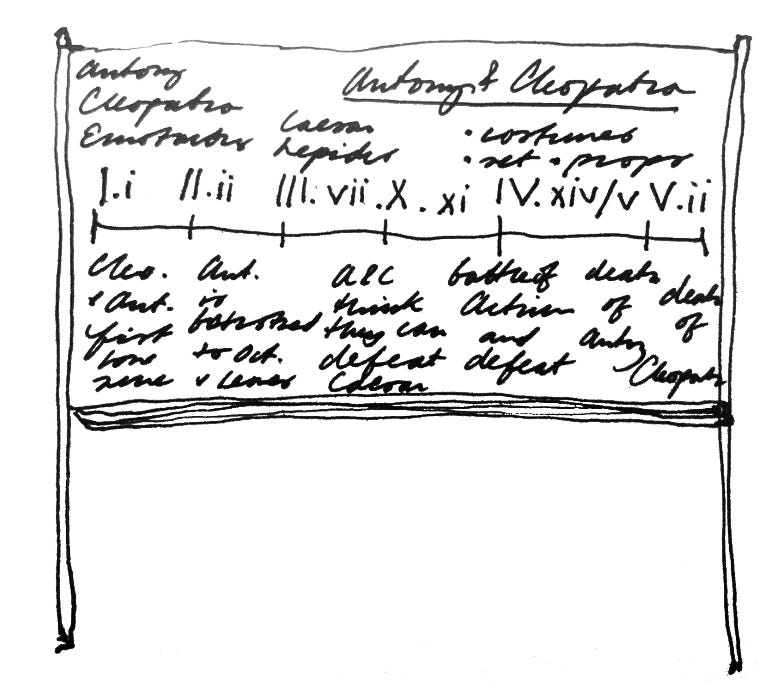 Antony & Cleopatra
Antony
Cleopatra
Enobarbus
Caesar
Lepidus
• costumes
• set • props
I.i II.ii III.vii.X.xi IV.xiv/v V.ii
Cleo.
& Ant.
first
love
scene
Ant.
is
betrothed
to Oct.
& leaves
A&C
think
they can
defeat
Caesar
battle of
Actium
and
defeat
death
of
Antony
death
of
Cleopatra